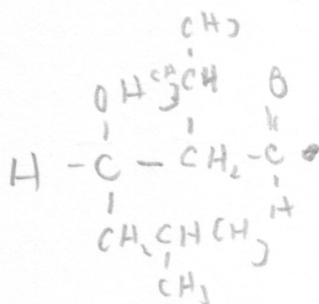 CH3
OH CH3 CH O
H - C - CH - CH2 - C
H
CH2 CH CH3
CH3